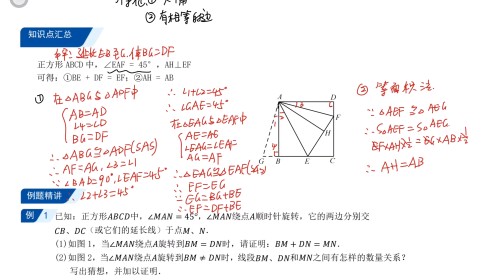 ②有相等的边
知识点汇总
解：延长EB至G.使BG=DF
正方形 ABCD 中，∠EAF = 45°，AH⊥EF
可得：①BE + DF = EF；②AH = AB
① 在△ABG与△ADF中
AB=AD
∠4=∠D
BG=DF
∴△ABG≌△ADF(SAS)
∴AF=AG, ∠3=∠1
∵∠BAD=90°,∠EAF=45°
∴∠2+∠3=45°
∴∠1+∠2=45°
∴∠GAE=45°
在△EAG与△EAF中
AE=AE
∠EAG=∠EAF
AG=AF
∴△EAG≌△EAF(SAS)
∴EF=EG
∵EG=BG+BE
∴EF=DF+BE
A
D
F
H
G
B
E
C
② 等面积法.
∵△AEF≌△AEG
∴S△AEF=S△AEG
EF×AH×½=EG×AB×½
∴AH=AB
例题精讲
例 1 已知：正方形ABCD中，∠MAN = 45°，∠MAN绕点A顺时针旋转，它的两边分别交
CB、DC（或它们的延长线）于点M、N．
(1)如图 1，当∠MAN绕点A旋转到BM = DN时，请证明：BM + DN = MN．
(2)如图 2，当∠MAN绕点A旋转到BM ≠ DN时，线段BM、DN和MN之间有怎样的数量关系？
写出猜想，并加以证明．